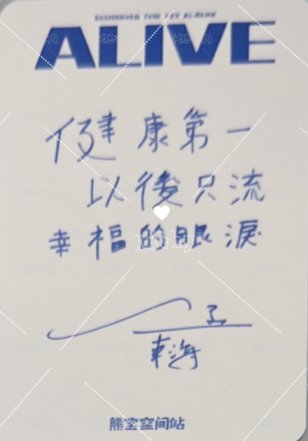 ALIVE
健康第一
以後只流
幸福的眼淚
東海
熊窝空间站